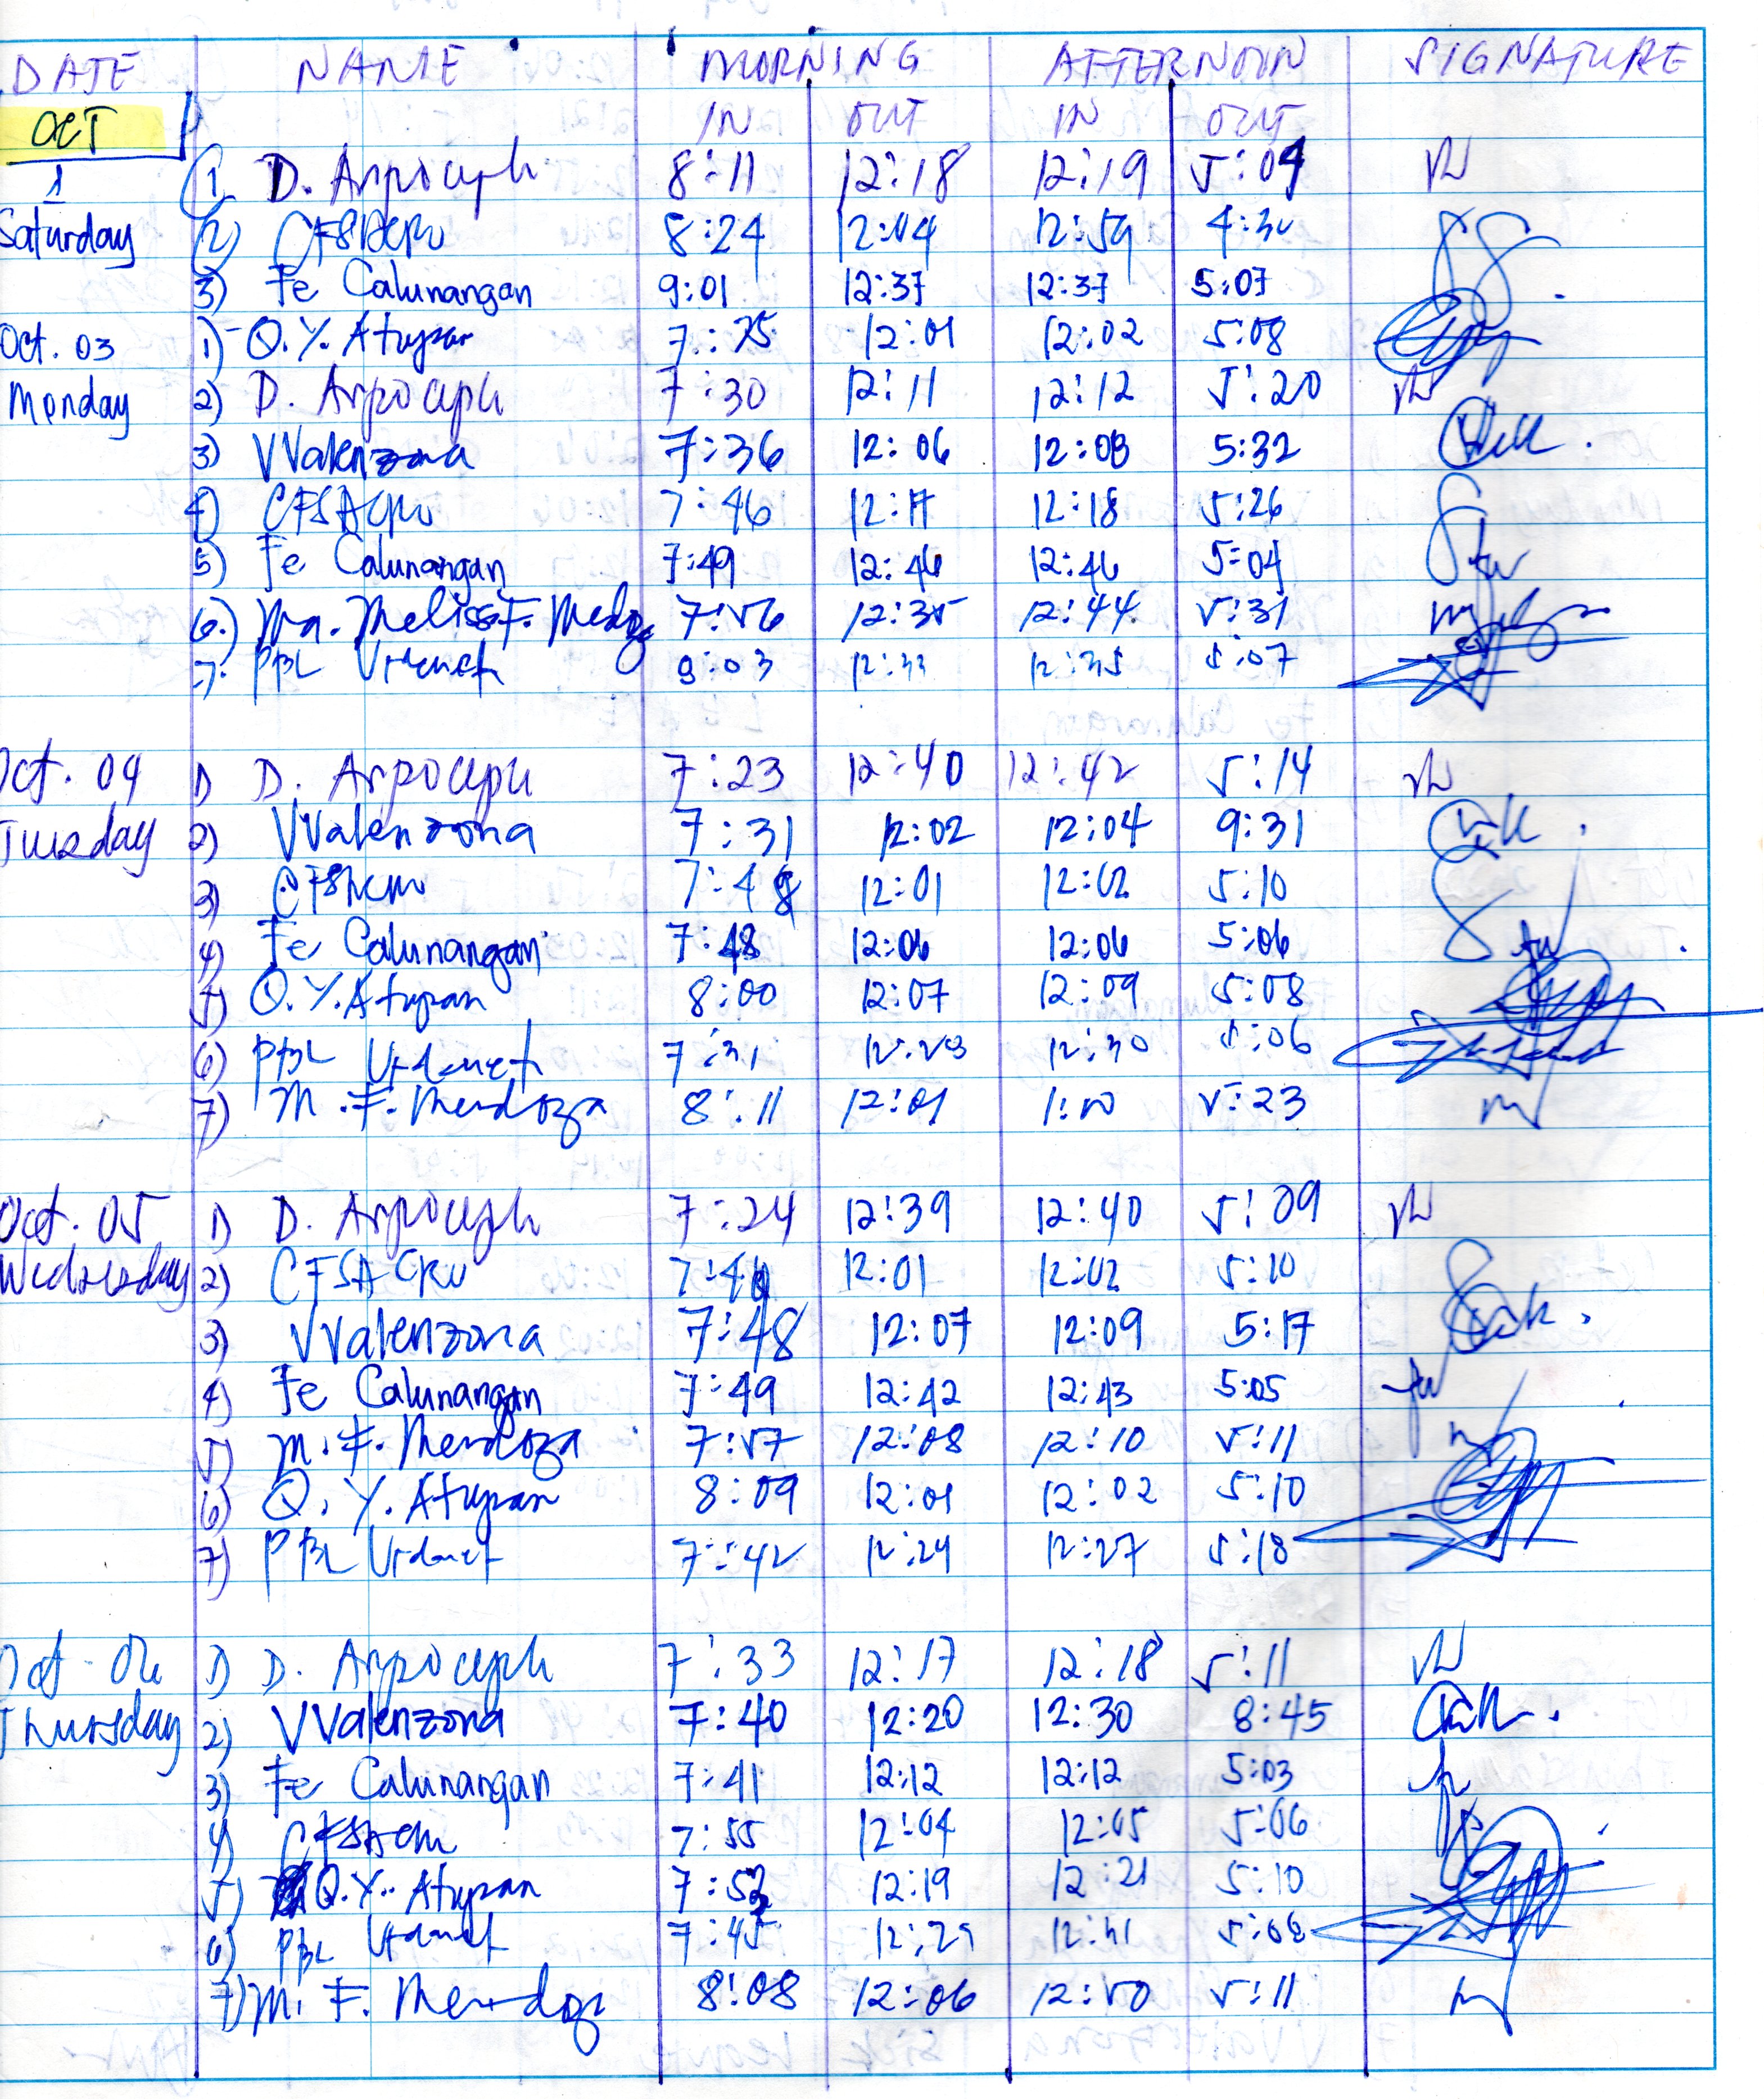 DATE NAME MORNING AFTERNOON SIGNATURE
OCT IN OUT IN OUT
1 1. D. 8:11 12:18 12:19 5:04
Saturday 2) 8:24 12:04 12:59 4:30
3) Fe Calunangan 9:01 12:37 12:37 5:07
Oct. 03 1) Q.Y. Atupan 7:25 12:01 12:02 5:08
Monday 2) D. 7:30 12:11 12:12 5:20
3) VValenzona 7:36 12:06 12:08 5:32
4) 7:46 12:17 12:18 5:26
5) Fe Calunangan 7:49 12:46 12:46 5:04
6.) Ma. Melissa F. 7:56 12:35 12:44 5:31
7. PBL 9:03 12:33 12:35 5:07
Oct. 04 1) D. 7:23 12:40 12:42 5:14
Tuesday 2) VValenzona 7:31 12:02 12:04 9:31
3) 7:48 12:01 12:02 5:10
4) Fe Calunangan 7:48 12:06 12:06 5:06
5) Q.Y. Atupan 8:00 12:07 12:09 5:08
6) PBL 7:31 12:30 5:06
7) M.F. Mendoza 8:11 12:01 5:23
Oct. 05 1) D. 7:24 12:39 12:40 5:09
Wednesday 2) 12:01 12:02 5:10
3) VValenzona 7:48 12:07 12:09 5:17
4) Fe Calunangan 7:49 12:42 12:43 5:05
5) M.F. Mendoza 7:57 12:08 12:10 5:11
6) Q.Y. Atupan 8:09 12:01 12:02 5:10
7) PBL 7:42 12:24 12:27 5:18
Oct 06 1) D. 7:33 12:17 12:18 5:11
Thursday 2) VValenzona 7:40 12:20 12:30 8:45
3) Fe Calunangan 7:41 12:12 12:12 5:03
4) 7:55 12:04 12:05 5:06
5) Q.Y. Atupan 12:19 12:21 5:10
6) PBL 7:45 12:29 12:31 5:08
7) M. F. Mendoza 8:08 12:06 12:50 5:11